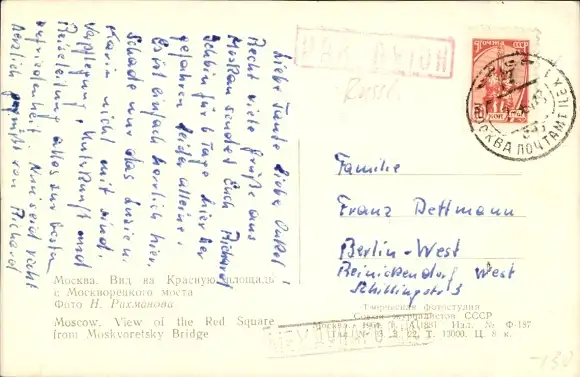 Liebe Tante Liebe Onkel!
Recht viele Grüße aus
Moskau sendet Euch Richard
Ich bin für 6 Tage hier her
gefahren leider alleine,
Es ist einfach herrlich hier.
Schade nur das Susi u.
Karin nicht mit sind.
Verpflegung, Unterkunft und
Reiseleitung alles zur besten
Zufriedenheit. Nun seid recht
herzlich gegrüßt von Richard
PAR AVION
Russl.
ПОЧТА СССР
МОСКВА ПОЧТАМТ
Familie
Franz Dettmann
Berlin-West
Reinickendorf West
Schillingstr 3
Москва. Вид на Красную площадь
с Москворецкого моста
Фото Н. Рахманова
Moscow. View of the Red Square
from Moskvoretsky Bridge
Творческая фотостудия
Союза журналистов СССР
Москва 1964 г. Зал. № Ф-187
Т. 13000. Ц. 8 к.
МЕЖДУНАРОД
-130